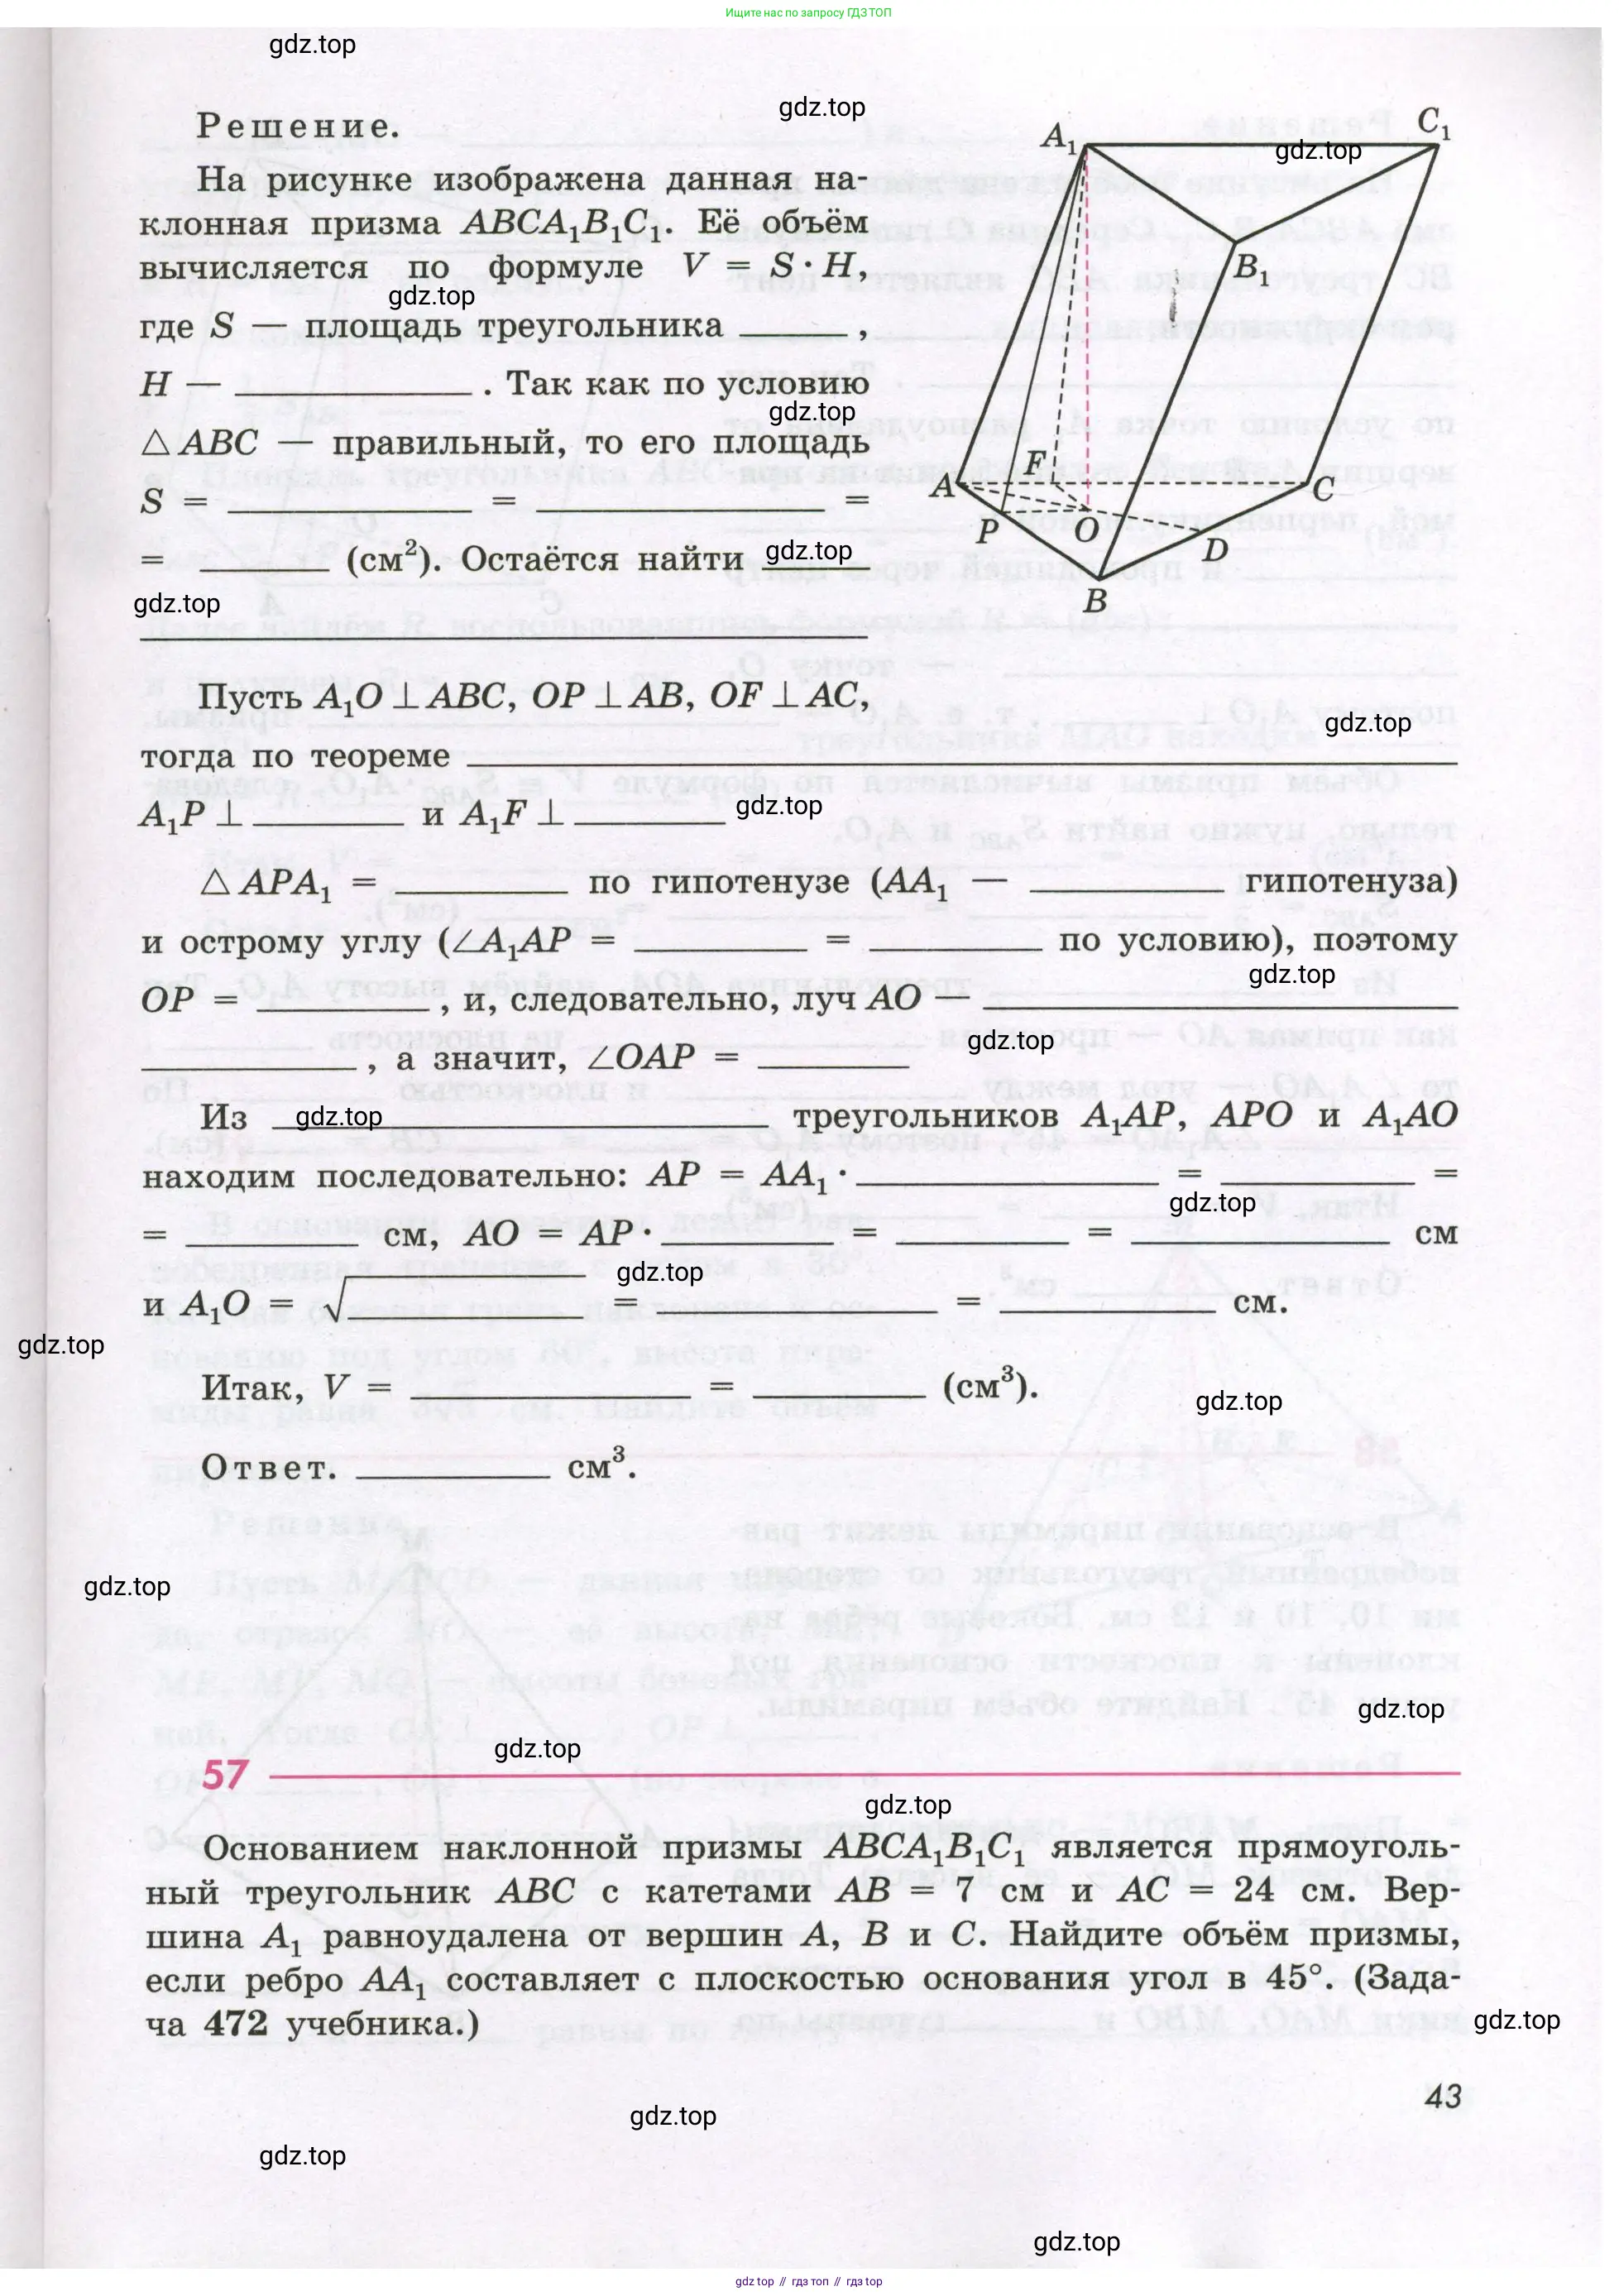 Ищите нас по запросу ГДЗ ТОП
gdz.top
gdz.top
Решение.
На рисунке изображена данная на-
клонная призма ABCA₁B₁C₁. Её объём
вычисляется по формуле V = S · H,
gdz.top
где S — площадь треугольника ______ ,
H — ______ . Так как по условию
gdz.top
△ ABC — правильный, то его площадь
S = ______ = ______ =
= ______ (см²). Остаётся найти ______
gdz.top
gdz.top
A₁
C₁
gdz.top
B₁
F
A
C
P
O
D
B
Пусть A₁O ⊥ ABC, OP ⊥ AB, OF ⊥ AC,
gdz.top
тогда по теореме ______
A₁P ⊥ ______ и A₁F ⊥ ______
gdz.top
△ APA₁ = ______ по гипотенузе (AA₁ — ______ гипотенуза)
и острому углу (∠A₁AP = ______ = ______ по условию), поэтому
gdz.top
OP = ______ , и, следовательно, луч AO — ______
______ , а значит, ∠OAP = ______
gdz.top
Из ______ треугольников A₁AP, APO и A₁AO
gdz.top
находим последовательно: AP = AA₁ · ______ = ______ =
gdz.top
= ______ см, AO = AP · ______ = ______ = ______ см
gdz.top
и A₁O = √______ = ______ = ______ см.
gdz.top
Итак, V = ______ = ______ (см³).
gdz.top
Ответ. ______ см³.
gdz.top
gdz.top
gdz.top
57
gdz.top
Основанием наклонной призмы ABCA₁B₁C₁ является прямоуголь-
ный треугольник ABC с катетами AB = 7 см и AC = 24 см. Вер-
шина A₁ равноудалена от вершин A, B и C. Найдите объём призмы,
если ребро AA₁ составляет с плоскостью основания угол в 45°. (Зада-
ча 472 учебника.)
gdz.top
43
gdz.top
gdz.top
gdz.top
gdz top // гдз топ // гдз top